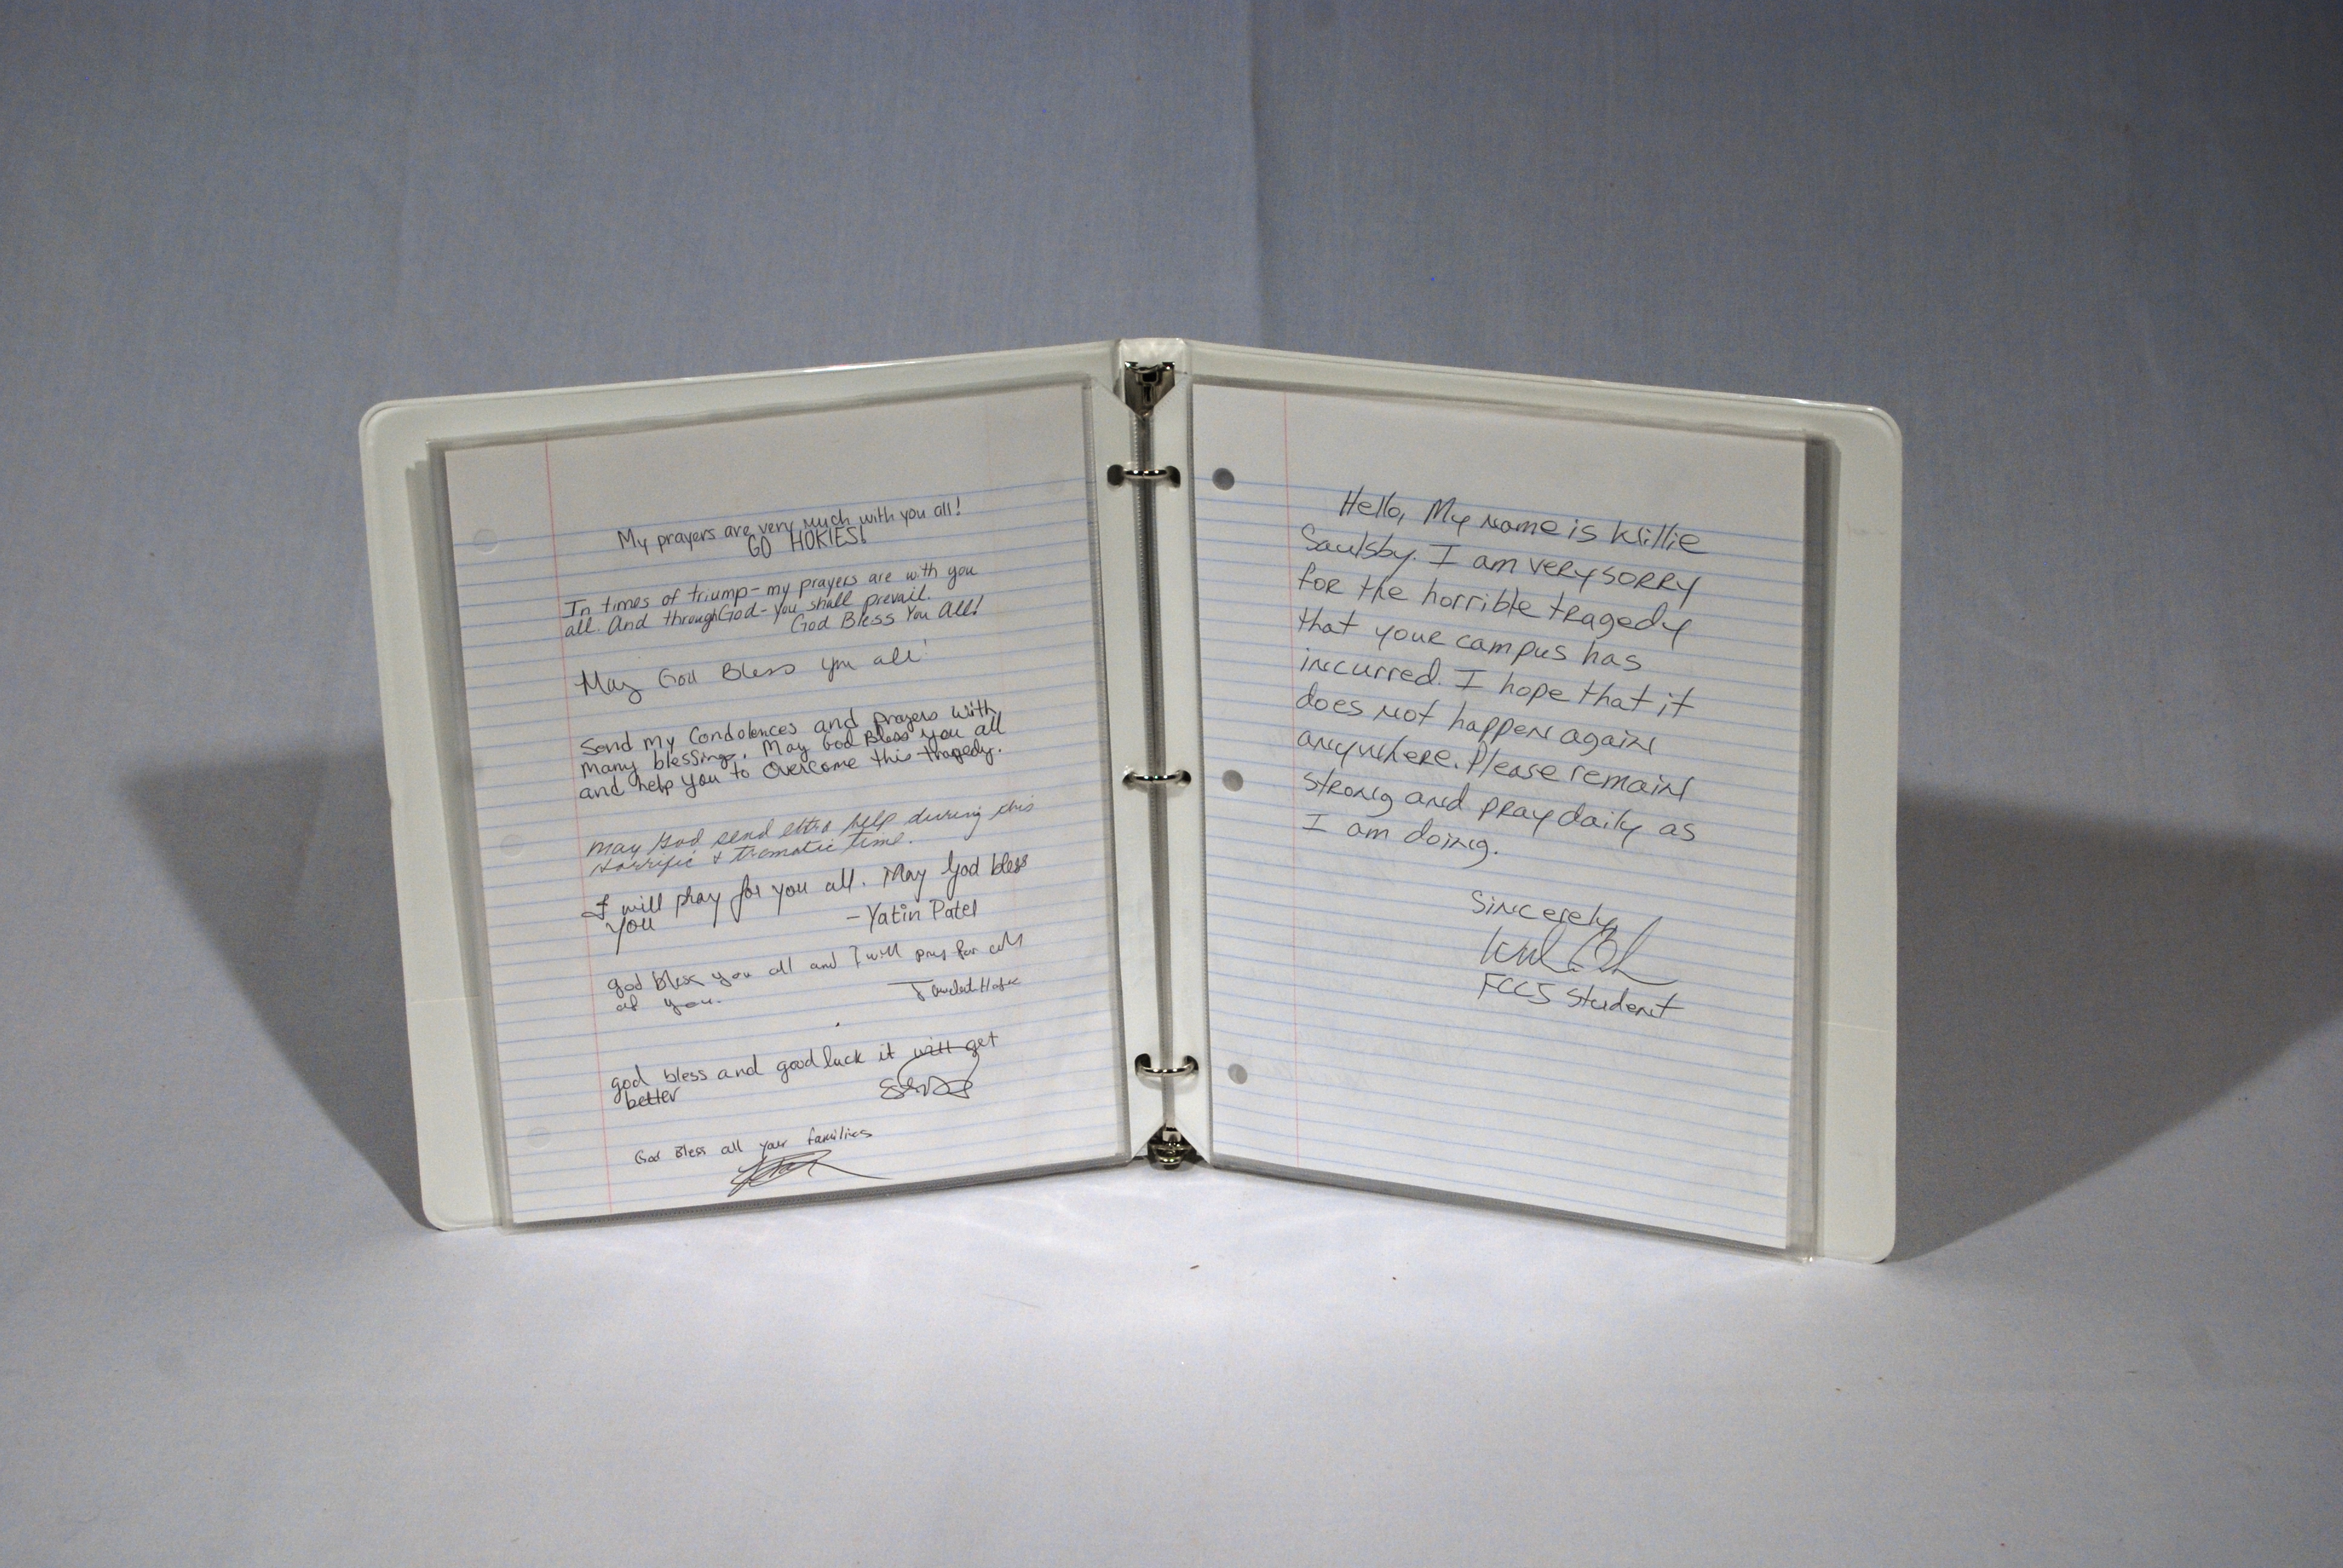 My prayers are very much with you all!
GO HOKIES!
In times of triump - my prayers are with you
all. And through God - you shall prevail.
God Bless You All!
May God Bless you all!
Send my Condolences and prayers with
many blessings. May God Bless you all
and help you to Overcome this tragedy.
May God send extra help during this
Horrific + tramatic time.
I will pray for you all. May God bless
you
- Yatin Patel
god bless you all and I will pray for all
of you.
god bless and good luck it will get
better
God Bless all your families
Hello, My name is Willie
Saulsby. I am very sorry
for the horrible tragedy
that your campus has
incurred. I hope that it
does not happen again
anywhere. Please remain
strong and pray daily as
I am doing.
Sincerely,
FCCJ Student